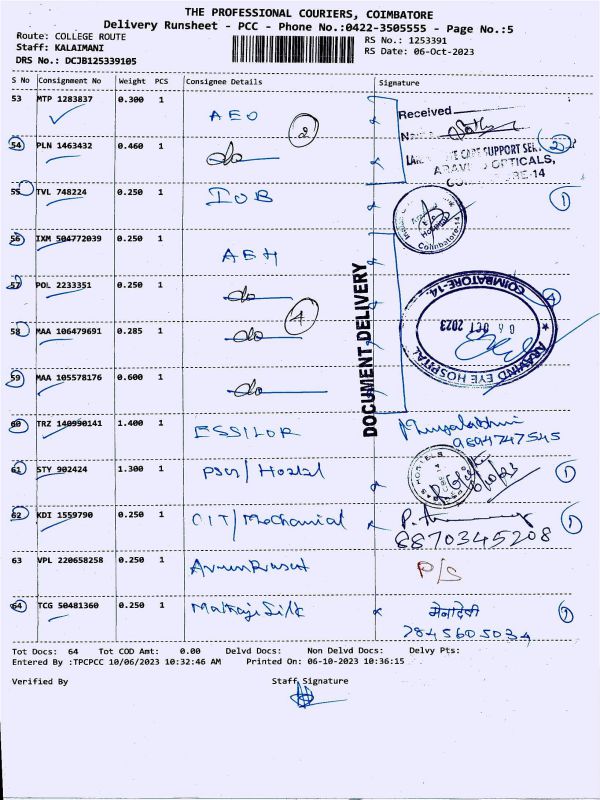 THE PROFESSIONAL COURIERS, COIMBATORE
Delivery Runsheet - PCC - Phone No.:0422-3505555 - Page No.:5
Route: COLLEGE ROUTE RS No.: 1253391
Staff: KALAIMANI RS Date: 06-Oct-2023
DRS No.: DCJB125339105
S No Consignment No Weight PCS Consignee Details Signature
53 MTP 1283837 0.300 1 AEO 2 Received
54 PLN 1463432 0.460 1 do 2
CARE SUPPORT
OPTICALS,
55 TVL 748224 0.250 1 IOB Coimbatore-14 1
56 IXM 504772039 0.250 1 AEH
57 POL 2233351 0.250 1 do 4
58 MAA 106479691 0.285 1 do 4
59 MAA 105578176 0.600 1 do
COIMBATORE-14.
06 OCT 2023
ARAVIND EYE HOSPITAL
DOCUMENT DELIVERY
60 TRZ 140990141 1.400 1 ESSILOR
9694747545
61 STY 902424 1.300 1 PSG/Hostel 6/10/23 1
62 KDI 1559790 0.250 1 CIT/Mechanical 1
8870345208
63 VPL 220658258 0.250 1 P/S
64 TCG 50481360 0.250 1 Silk मेनादेवी 1
7845605034
Tot Docs: 64 Tot COD Amt: 0.00 Delvd Docs: Non Delvd Docs: Delvy Pts:
Entered By :TPCPCC 10/06/2023 10:32:46 AM Printed On: 06-10-2023 10:36:15
Verified By Staff Signature